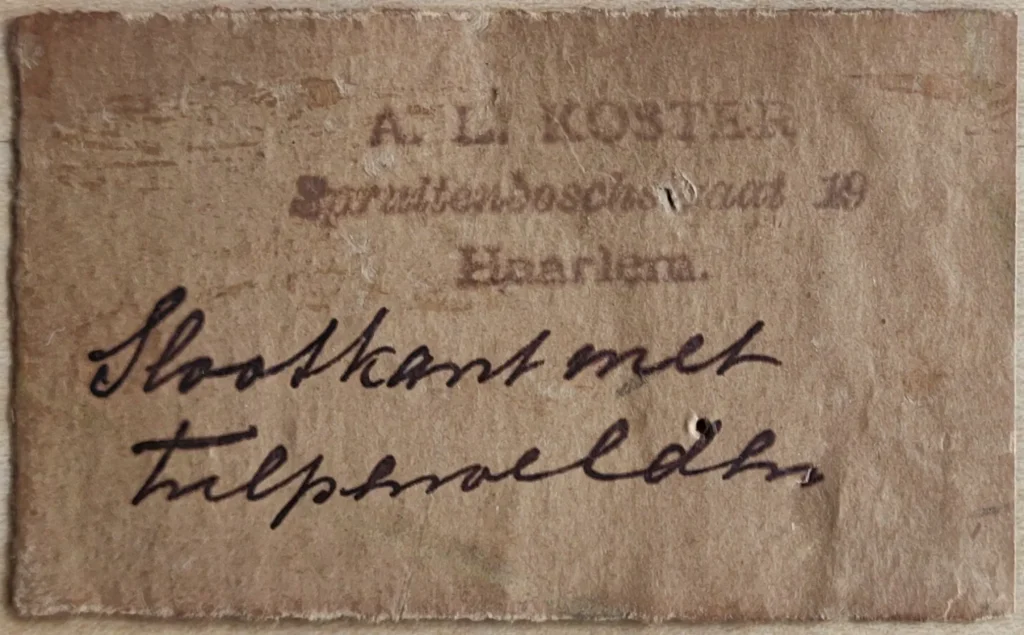 A. L. KOSTER
Spruitenboschstraat 19
Haarlem.
Slootkant met
tulpenvelden